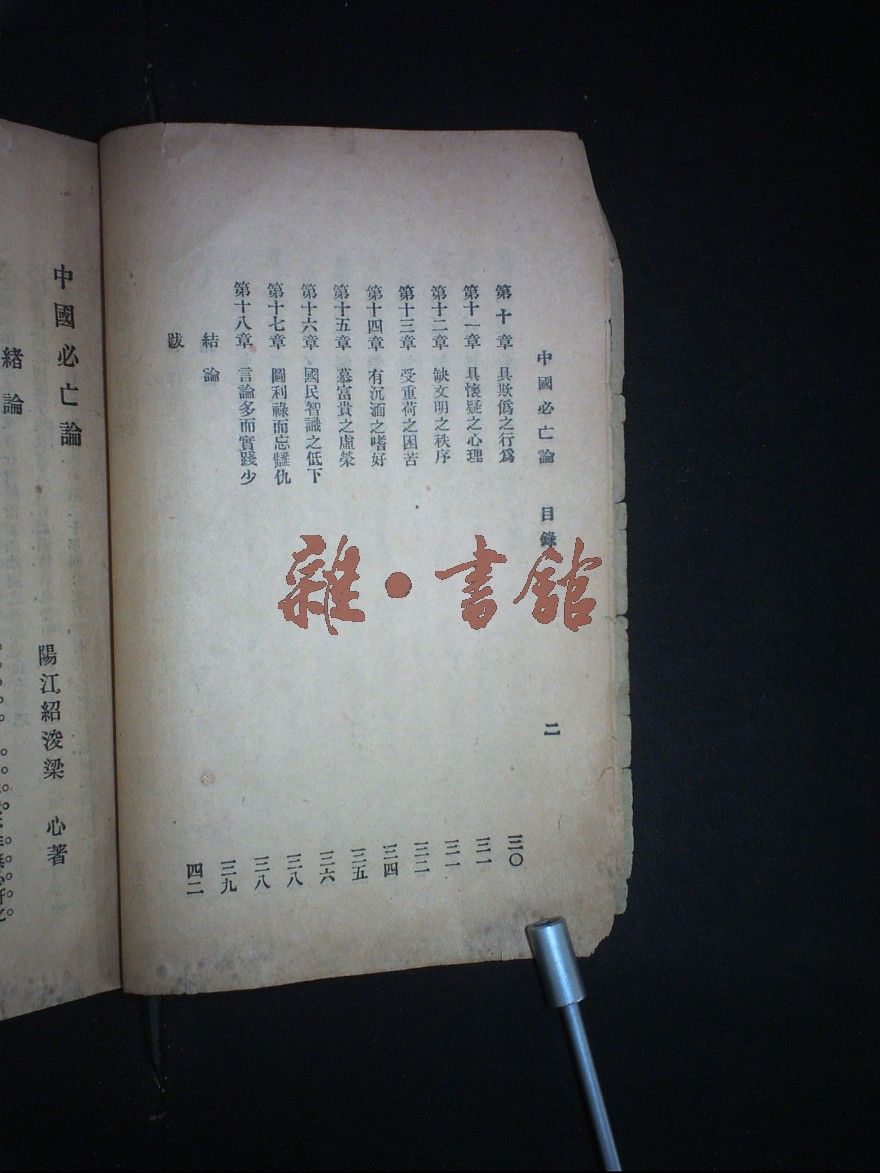 中國必亡論 目錄 二
第十章 具欺僞之行爲 三〇
第十一章 具懷疑之心理 三一
第十二章 缺文明之秩序 三一
第十三章 受重荷之困苦 三二
第十四章 有沉湎之嗜好 三四
第十五章 慕富貴之虛榮 三五
第十六章 國民智識之低下 三六
第十七章 圖利祿而忘讎仇 三八
第十八章 言論多而實踐少 三八
結論 三九
跋 四二
中國必亡論
陽江紹浚梁 心著
緒論
雜·書館